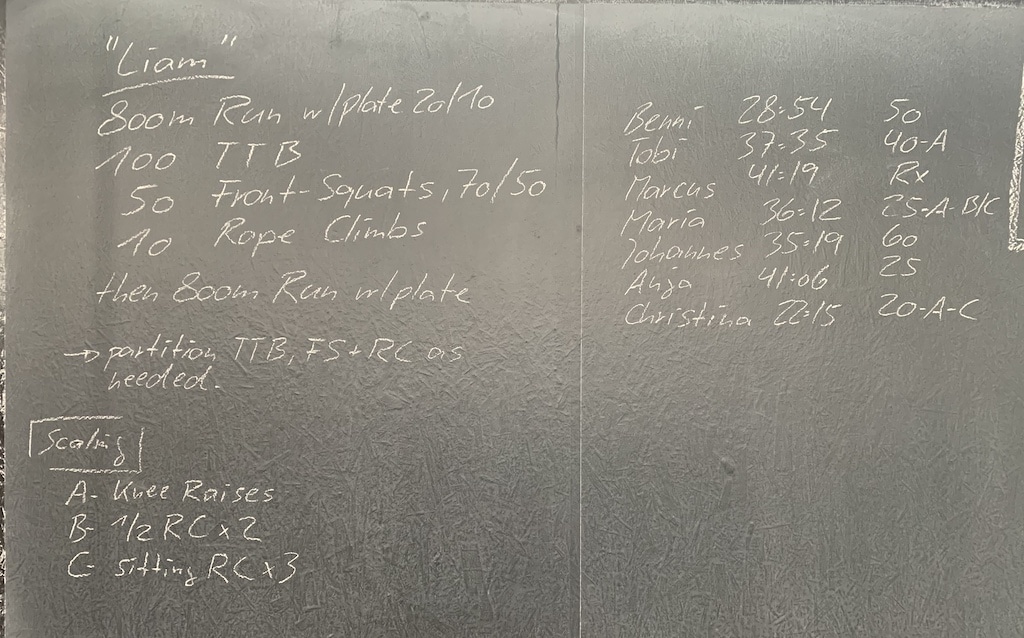 "Liam"
800m Run w/plate 20/10
100 TTB
50 Front-Squats, 70/50
10 Rope Climbs
then 800m Run w/plate
→ partition TTB, FS+RC as
needed.
Scaling
A- Knee Raises
B- 1/2 RC x 2
C- sitting RC x 3
Benni 28:54 50
Tobi 37:35 40-A
Marcus 41:19 Rx
Maria 36:12 25-A-B/C
Johannes 35:19 60
Anja 41:06 25
Christina 22:15 20-A-C